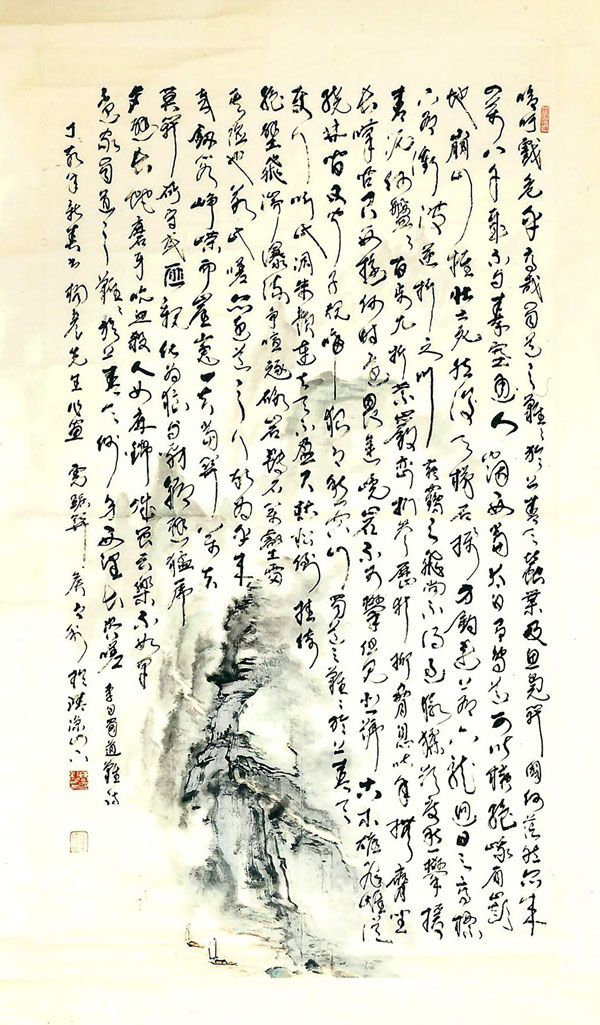 噫吁戲危乎高哉蜀道之難難於上青天蠶叢及魚鳧開國何茫然尔來
四萬八千歲不与秦塞通人煙西當太白有鳥道可以橫絕峨眉巔
地崩山摧壯士死然後天梯石棧方鉤連上有六龍回日之高標
下有衝波逆折之川黃鶴之飛尚不得過猨猱欲度愁攀援
青泥何盤盤百步九折縈巖巒捫參歷井仰脅息以手撫膺坐
長嘆問君西遊何時還畏途巉岩不可攀但見悲鳥號古木雄飛雌從
繞林間又聞子規啼夜月愁空山蜀道之難難於上青天
使人听此凋朱顏連峰去天不盈尺枯松倒挂倚
絕壁飛湍瀑流爭喧豗砯崖轉石萬壑雷
其險也若此嗟尔遠道之人胡為乎來
哉劍閣崢嶸而崔嵬一夫當關萬夫
莫開所守或匪親化為狼与豺朝避猛虎
夕避長蛇磨牙吮血殺人如麻錦城雖云樂不如早
還家蜀道之難難於上青天側身西望長咨嗟
李白蜀道難詩
丁亥年新春 先生作畫